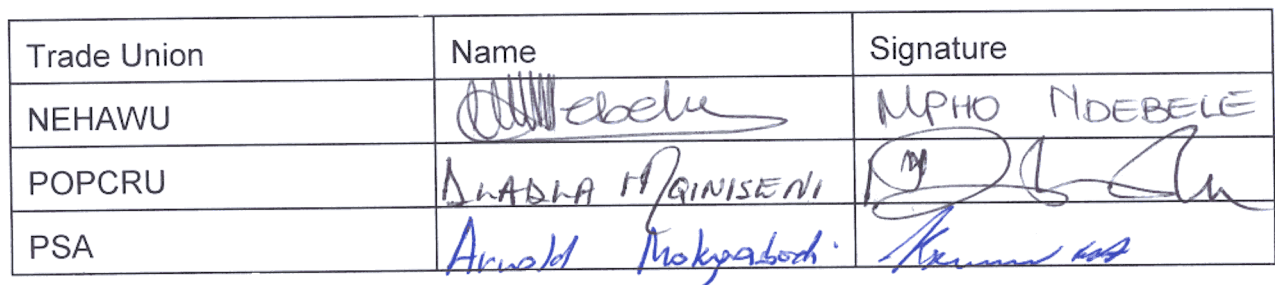 Trade Union Name Signature
NEHAWU MPHO NDEBELE
POPCRU DLADLA MQINISENI
PSA Arnold